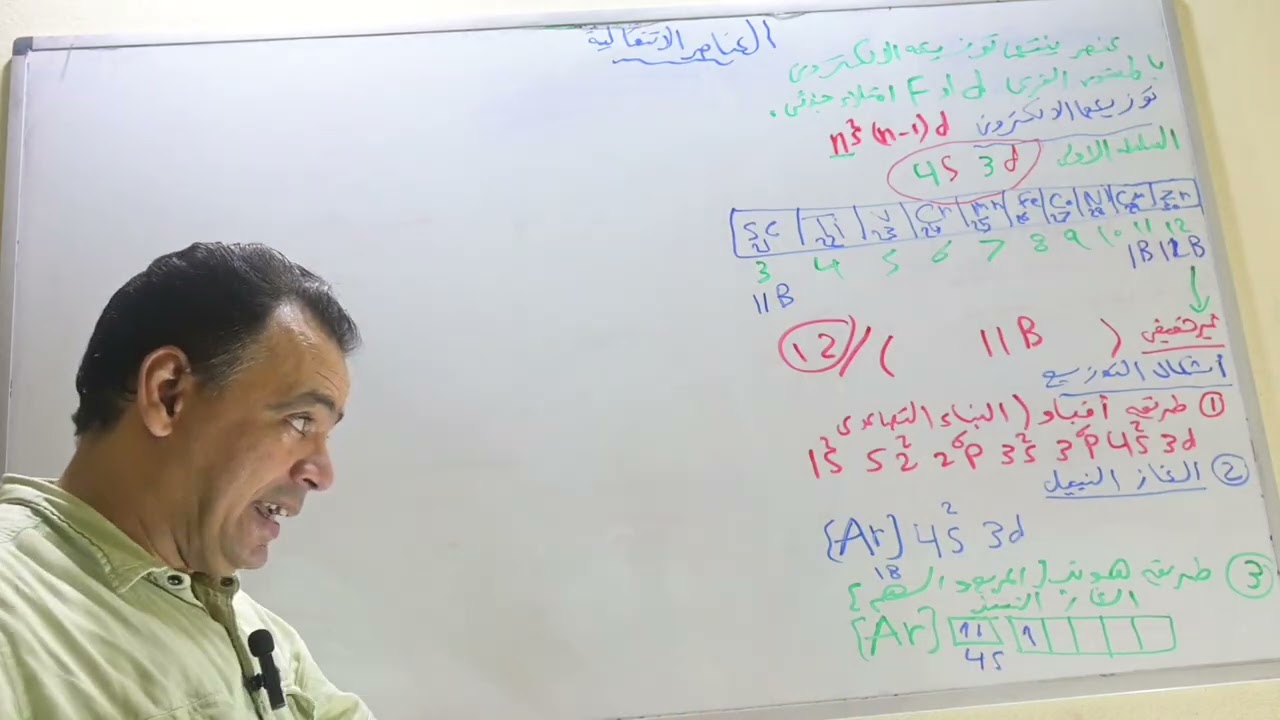 العناصر الانتقالية
عنصر ينتهي توزيعه الالكتروني
بالمستوى الفرعي d او F امتلاء جزئي.
توزيعها الالكتروني
ns² (n-1) d
السلسله الاولى
4S 3d
Sc Ti V Cr Mn Fe Co Ni Cu Zn
21 22 23 24 25 26 27 28 29 30
3 4 5 6 7 8 9 10 11 12
11B 1B 12B
غير حقيقي ( 11B ) / 12
أشكال التوزيع
① طريقه أفباو (البناء التصاعدي
1S² S2² 2P⁶ 3S² 3P⁶ 4S² 3d
② الغاز النبيل
[Ar] 4S² 3d
18
③ طريقه هوند [المربع والسهم]
الغاز النبيل
[Ar] 11 1
4S